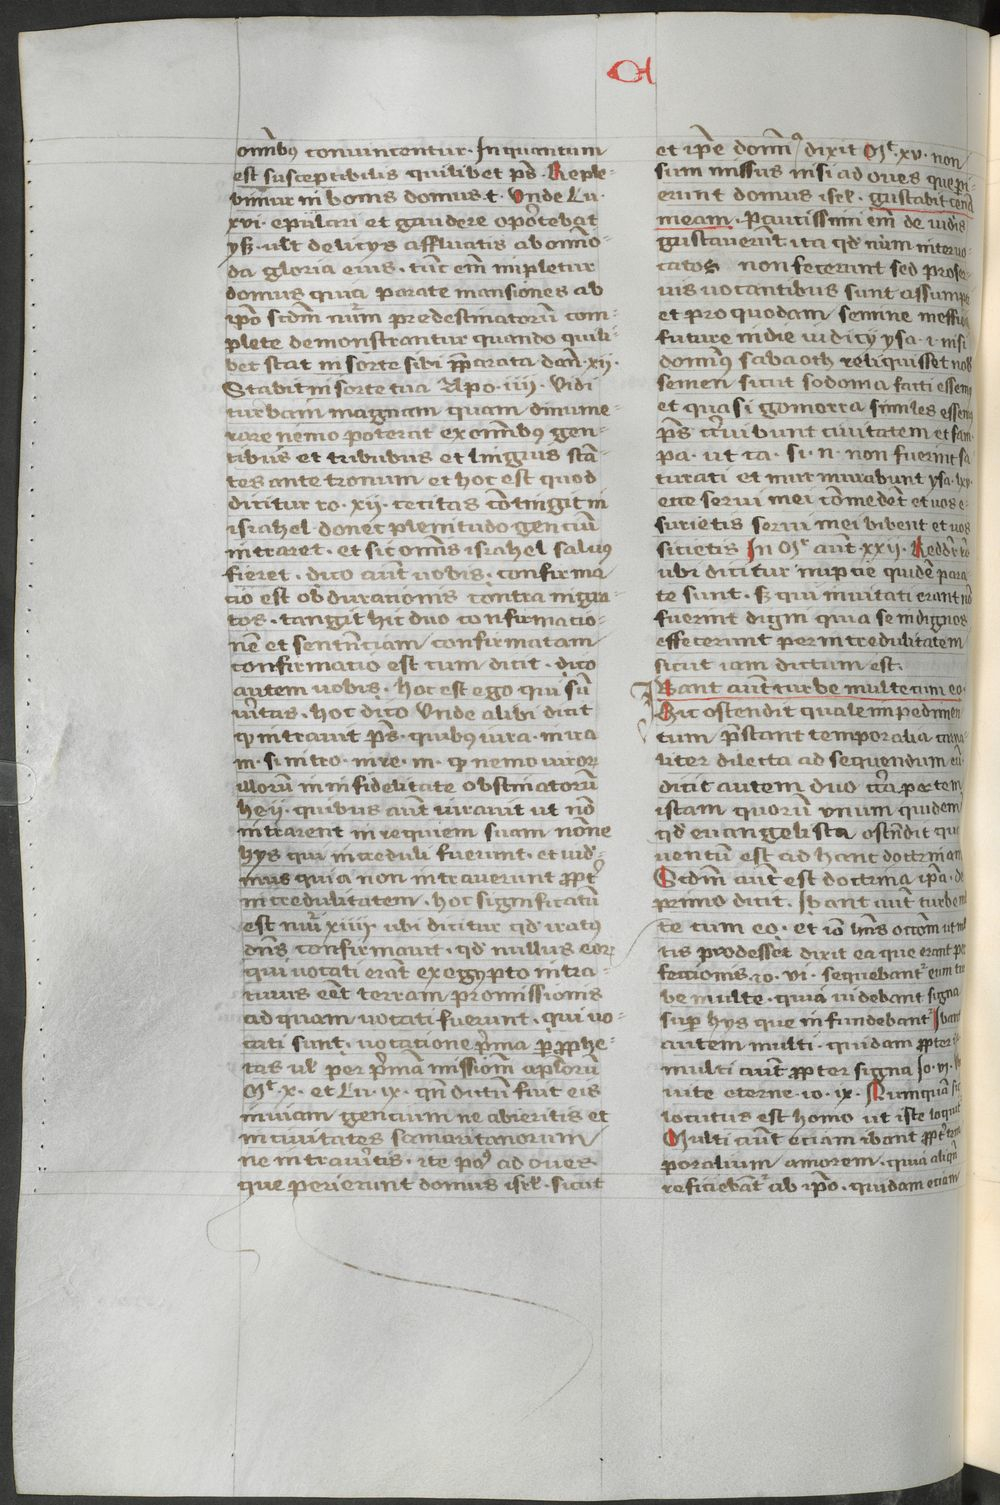 om̅ibus conuincentur. In quantum
est susceptibilis quilibet ps. Reple-
bimur in bonis domus t. Vnde Lu.
xvi. epulari et gaudere oportebat
ysa. ult delicys affluatis ab omno-
da gloria eius. tūc em̄ impletur
domus quia parate mansiones ab
ipō scdm̄ nūm predestinatorū com-
plete demonstrantur quando quili-
bet stat in sorte sibi p̄parata dan̄. xii.
Stabit in sorte tua Apo. iiij. Vidi
turbam magnam quam dinume-
rare nemo poterat ex om̅ibus gen-
tibus et tribubus et linguis stā-
tes ante tronum et hoc est quod
dicitur ro. xij. cecitas cōtingit in
israhel donec plenitudo genciū
intraret. et sic om̄is israhel saluus
fieret. dico aut̄ uobis. confirma
cio est obduracionis contra ingra-
tos. tangit hic duo confirmacio-
nē et sentn̄ciam confirmatam
confirmacio est cum dicit. dico
autem uobis. hoc est ego qui sū
uītas. hoc dico Vnde alibi dicit
ꝙ intrauit ps̄. quibus iura. in ira
m. si intro. in re. m. ꝙ nemo uiror̄
illorū in infidelitate obstinatorū
he ij. quibus aut̄ iurauit ut nō
intrarent in requiem suam nōne
hys qui increduli fuerunt. et uid-
imus quia non intrauerunt ꝓpt̄
incredulitatem. hoc significatū
est nūi xiiii. ubi dicitur qd̄ iratus
dn̄s confirmauit. qd̄ nullus eor̄
qui uocati erāt ex egypto intra-
turus eēt terram promissionis
ad quam uocati fuerunt. qui uo-
cati sunt. uocatione p̄ma per ꝓphe-
tas ul̄ per p̄mā missiōm apl̄orū
Mt. x. et Lu. ix. qn̄ dictū fuit eis
in uiam gencium ne abieritis et
in ciuitates samaritanorum
ne intraūitis. ite pos ad oues
que perierunt domus isrl̄. sicut
et ip̄e domin̄s dixit Mt. xv. non
sum missus nisi ad oues que peri-
erunt domus isrl̄. gustabit cenā
meam. Paucissimi em̄ de iudeis
gustauerūt ita qd̄ nūm in teruo-
catos non fecerunt sed prose-
uis uocantibus sunt assumpti
et pro quodam semine messium
future in die iudicij ysa. i. nisi
domin̄us sabaoth reliquisset nob̄
semen sicut sodoma facti essem̄
et quasi gomorra similes essem̄
ps̄. circuibunt ciuitatem et fam.
pa. ut ca. si. n. non fuerint sa
turati et murmurabunt ysa. lxv.
ecce serui mei cōmedēt et uos e-
surietis serui mei bibent et uos
sicietis In Mt aut̄ xxij. Reddit̄
ubi dicitur nupcie quidē para
te sunt. sꝫ qui inuitati erant nō
fuerint digni quia se indignos
effecerunt per incredulitatem
sicut iam dictum est.
Ibant aut̄ turbe multe cum eo.
Hic ostendit quale impedimen
tum p̄stant temporalia carna-
liter dilecta ad sequendum eū.
dicit autem duo circa partem
istam quorū vnum quidem
qd̄ euangelista ostn̄dit que
uentū est ad hanc doctrinam
Scdm̄ aut̄ est doctrina ip̄a. de
primo dicit. Ibant aut̄ turbe ml
te cum eo. et iō hn̄s occōm ut ml
tis prodesset dixit ea que erant per
fectionis. io. vi. sequebant̄ eum tur
be multe. quia uidebant signa
sup̄ hys que infundebant̄ Ibant
autem multi. quidam ꝓpter
multi aut̄ ꝓpter signa Jo. vi.
uite eterne. io. ix. Nunquā sic
locutus est homo ut iste loquit̄
Multi aut̄ eciam ibant ꝓpt̄ tem
poralium amorem. quia aliqn̄
reficiebāt̄ ab ipō. quidam eciam